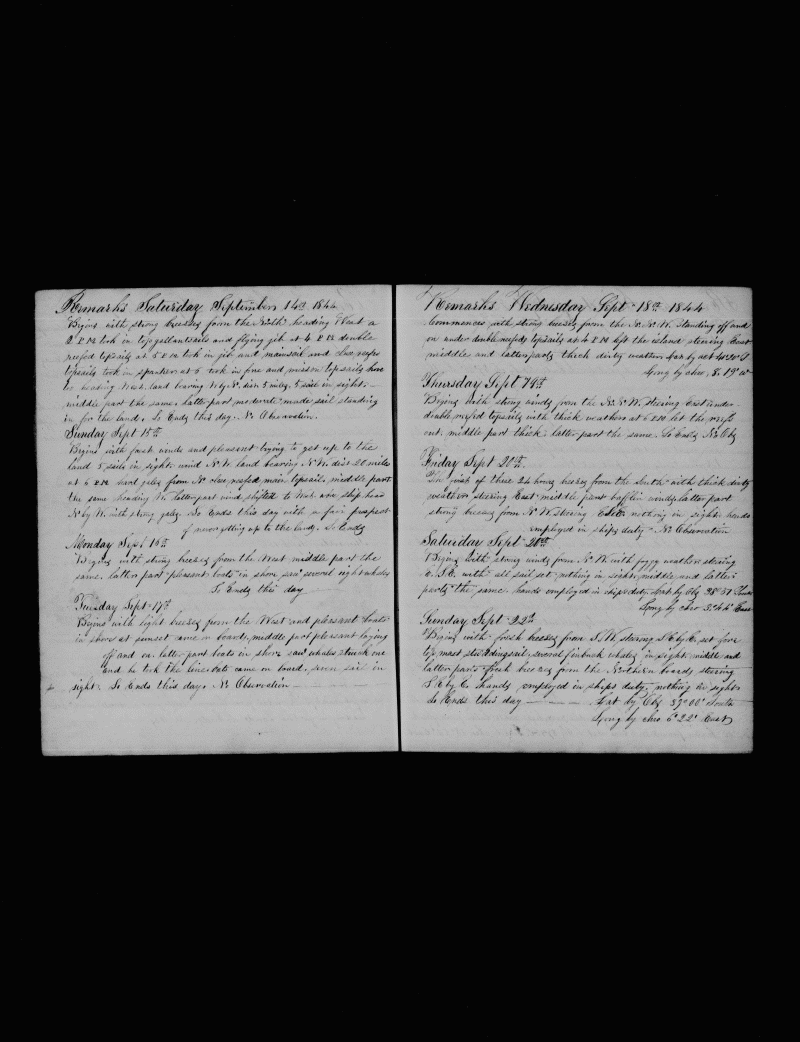 Remarks Saturday September 14th 1844
Begins with strong breezes from the North heading West a
2 P M took in topgallantsails and flying jib at 4 P M double
reefed topsails at 5 P M took in jib and mainsail and close reefed
topsails took in spanker at 6 took in fore and mizen topsails hove
to heading West. land bearing W by N. dist 5 miles, 5 sail in sight.
middle part the same. latter part moderate made sail standing
in for the land. So Ends this day. No Observation.
Sunday Sept 15th
Begins with fresh winds and pleasant trying to get up to the
land 3 sails in sight. wind N.W. land bearing N.W. dist 20 miles
at 6 P M hard gales from N. close reefed main topsail, middle part
the same heading W. latter part wind shifted to West. wore ship head
N by W. with strong gales. So Ends this day with a fair prospect
of never getting up to the land. So Ends
Monday Sept 16th
Begins with strong breezes from the West middle part the
same. latter part pleasant boats in shore saw several right whales
So Ends this day
Tuesday Sept 17th
Begins with light breezes from the West and pleasant boats
in shore at sunset came on board, middle part pleasant laying
off and on. latter part boats in shore saw whales struck one
and he tok the line. boats came on board. seven sail in
sight. So Ends this day. No Observation
Remarks Wednesday Sept 18th 1844
Commences with strong breezes from the N. N. W. Standing off and
on under double reefed topsails at 4 P M left the island steering East
middle and latter parts thick dirty weather. Lat by act 40°30' S
Long by chro. 8. 19' W
Thursday Sept 19th
Begins with strong winds from the N. N. W. steering East under
double reefed topsails with thick weather at 6 P M let the reefs
out. middle part thick. latter part the same. So Ends No Obs
Friday Sept 20th.
The first of these 24 hours breezes from the South with thick dirty
weather steering East middle part bafflin winds latter part
strong breezes from N. W. steering nothing in sight. hands
employed in ships duty No Observation
Saturday Sept 21st
Begins with strong winds from N. W. with foggy weather steering
E. S. E. with all sail set, nothing in sight, middle and latter
parts the same. hands employed in ships duty. Lat by Obs 38° 51' South
Long by chro 3° East
Sunday Sept 22d
Begins with fresh breezes from N. W. steering S. E. by E. set fore
top mast studdingsail. several finback whales in sight. middle and
latter parts fresh breezes from the Northern board steering
S. E. by E. hands employed in ships duty. nothing in sight.
So Ends this day Lat by Obs 39° 00' South
Long by chro 6° 22' East